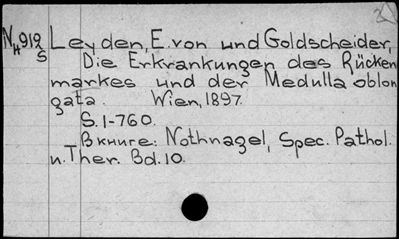 N 919 Leyden, E. von und Goldscheider,
H S
Die Erkrankungen des Rücken
markes und der Medulla oblon
gata. Wien, 1897.
S. 1-760.
В книге: Nothnagel, Spec. Pathol.
u. Ther. Bd. 10.